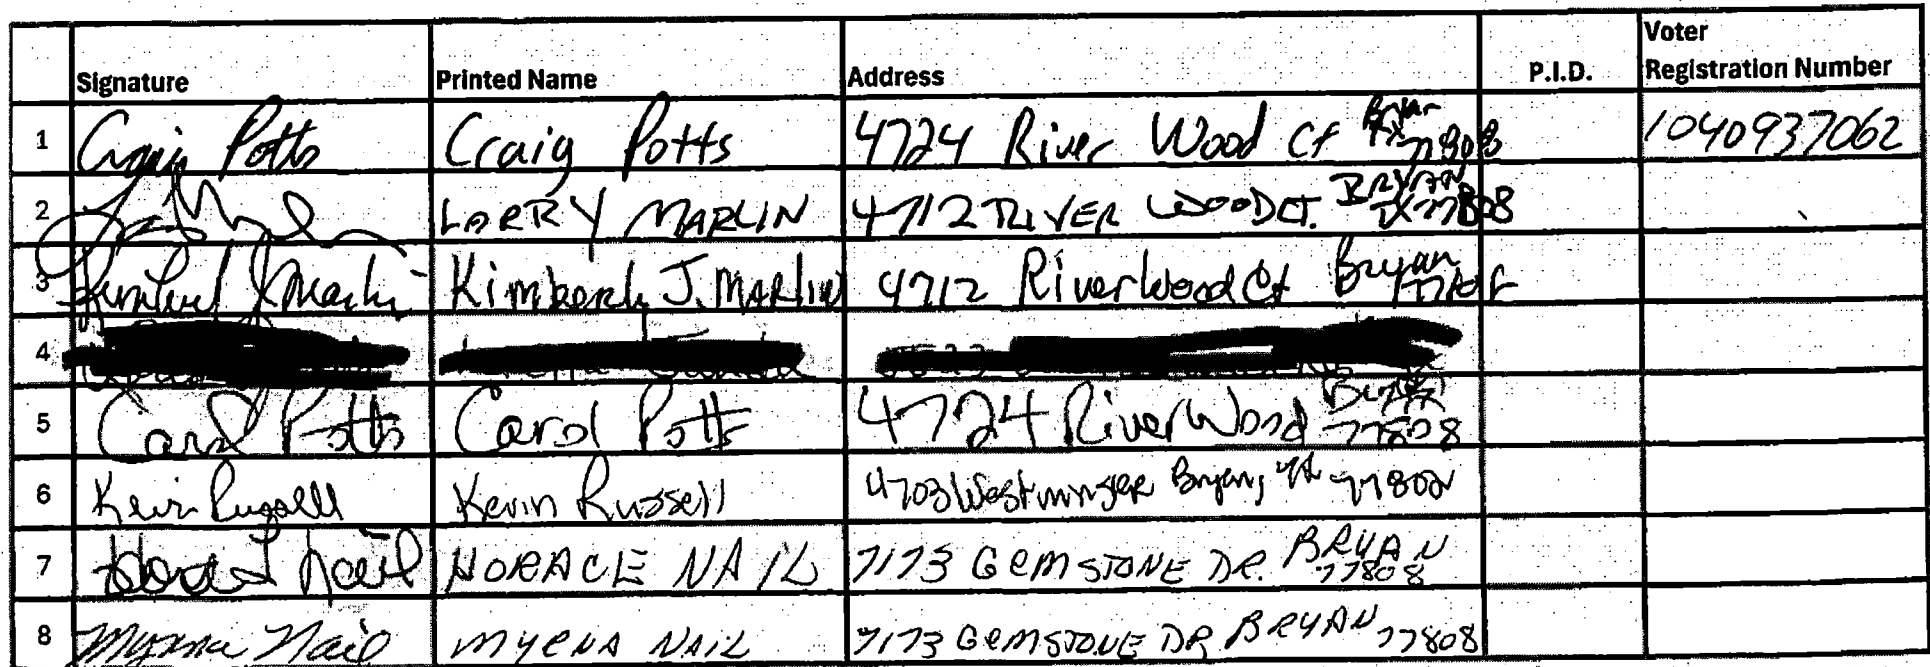 Signature Printed Name Address P.I.D. Voter Registration Number
1 Craig Potts Craig Potts 4724 River Wood Ct Bryan TX 77808 1040937062
2 LARRY MARLIN 4712 RIVER WOOD CT. BRYAN TX 77808
3 Kimberly J. MARLIN 4712 RiverWood Ct Bryan
4
5 Carol Potts Carol Potts 4724 RiverWood 77808
6 Kevin Russell Kevin Russell 4703 Westminster Bryan, 77802
7 Nail HORACE NAIL 7173 GEMSTONE DR. BRYAN 77808
8 Myrna Nail MYRNA NAIL 7173 GEMSTONE DR BRYAN 77808